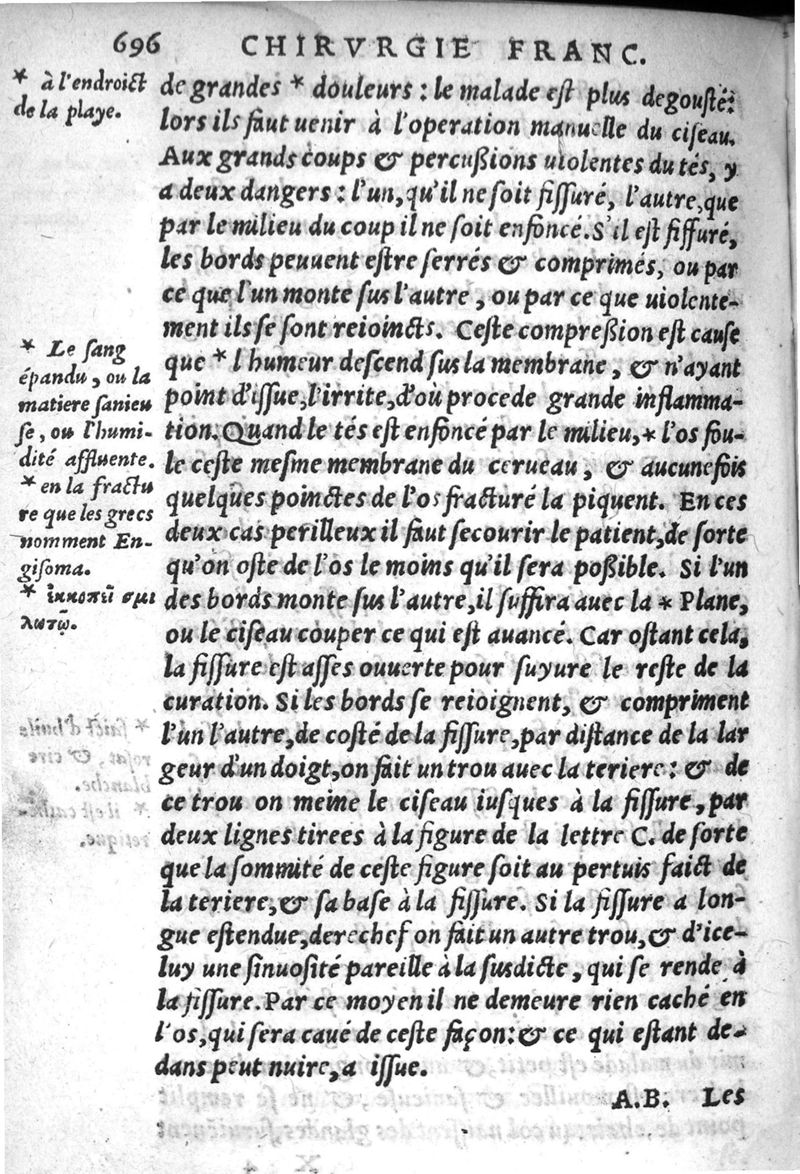 696 CHIRVRGIE FRANC.
* à l'endroict
de la playe.
de grandes * douleurs : le malade est plus degousté:
lors ils faut uenir à l'operation manuelle du ciseau.
Aux grands coups & percußions uiolentes du tés, y
a deux dangers : l'un, qu'il ne soit fissuré, l'autre, que
par le milieu du coup il ne soit enfoncé. S'il est fissuré,
les bords peuuent estre serrés & comprimés, ou par
ce que l'un monte sus l'autre, ou par ce que uiolente-
ment ils se sont reioincts. Ceste compreßion est cause
que * l'humeur descend sus la membrane, & n'ayant
point d'issue, l'irrite, d'où procede grande inflamma-
tion. Quand le tés est enfoncé par le milieu, * l'os fou-
le ceste mesme membrane du cerueau, & aucunefois
quelques poinctes de l'os fracturé la piquent. En ces
deux cas perilleux il faut secourir le patient, de sorte
qu'on oste de l'os le moins qu'il sera poßible. Si l'un
des bords monte sus l'autre, il suffira auec la * Plane,
ou le ciseau couper ce qui est auancé. Car ostant cela,
la fissure est asses ouuerte pour suyure le reste de la
curation. Si les bords se reioignent, & compriment
l'un l'autre, de costé de la fissure, par distance de la lar
geur d'un doigt, on fait un trou auec la teriere : & de
ce trou on meine le ciseau iusques à la fissure, par
deux lignes tirees à la figure de la lettre C. de sorte
que la sommité de ceste figure soit au pertuis faict de
la teriere, & sa base à la fissure. Si la fissure a lon-
gue estendue, derechef on fait un autre trou, & d'ice-
luy une sinuosité pareille à la susdicte, qui se rende à
la fissure. Par ce moyen il ne demeure rien caché en
l'os, qui sera caué de ceste façon: & ce qui estant de-
dans peut nuire, a issue.
* Le sang
épandu, ou la
matiere sanieu
se, ou l'humi-
dité affluente.
* en la fractu
re que les grecs
nomment En-
gisoma.
* ἐκκοπεῖ σμι
λωτῷ.
A.B. Les